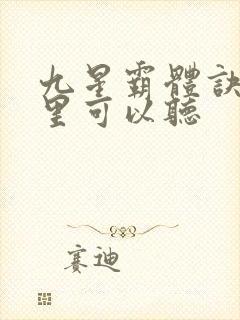 九星霸體訣
里可以聽
賽迪